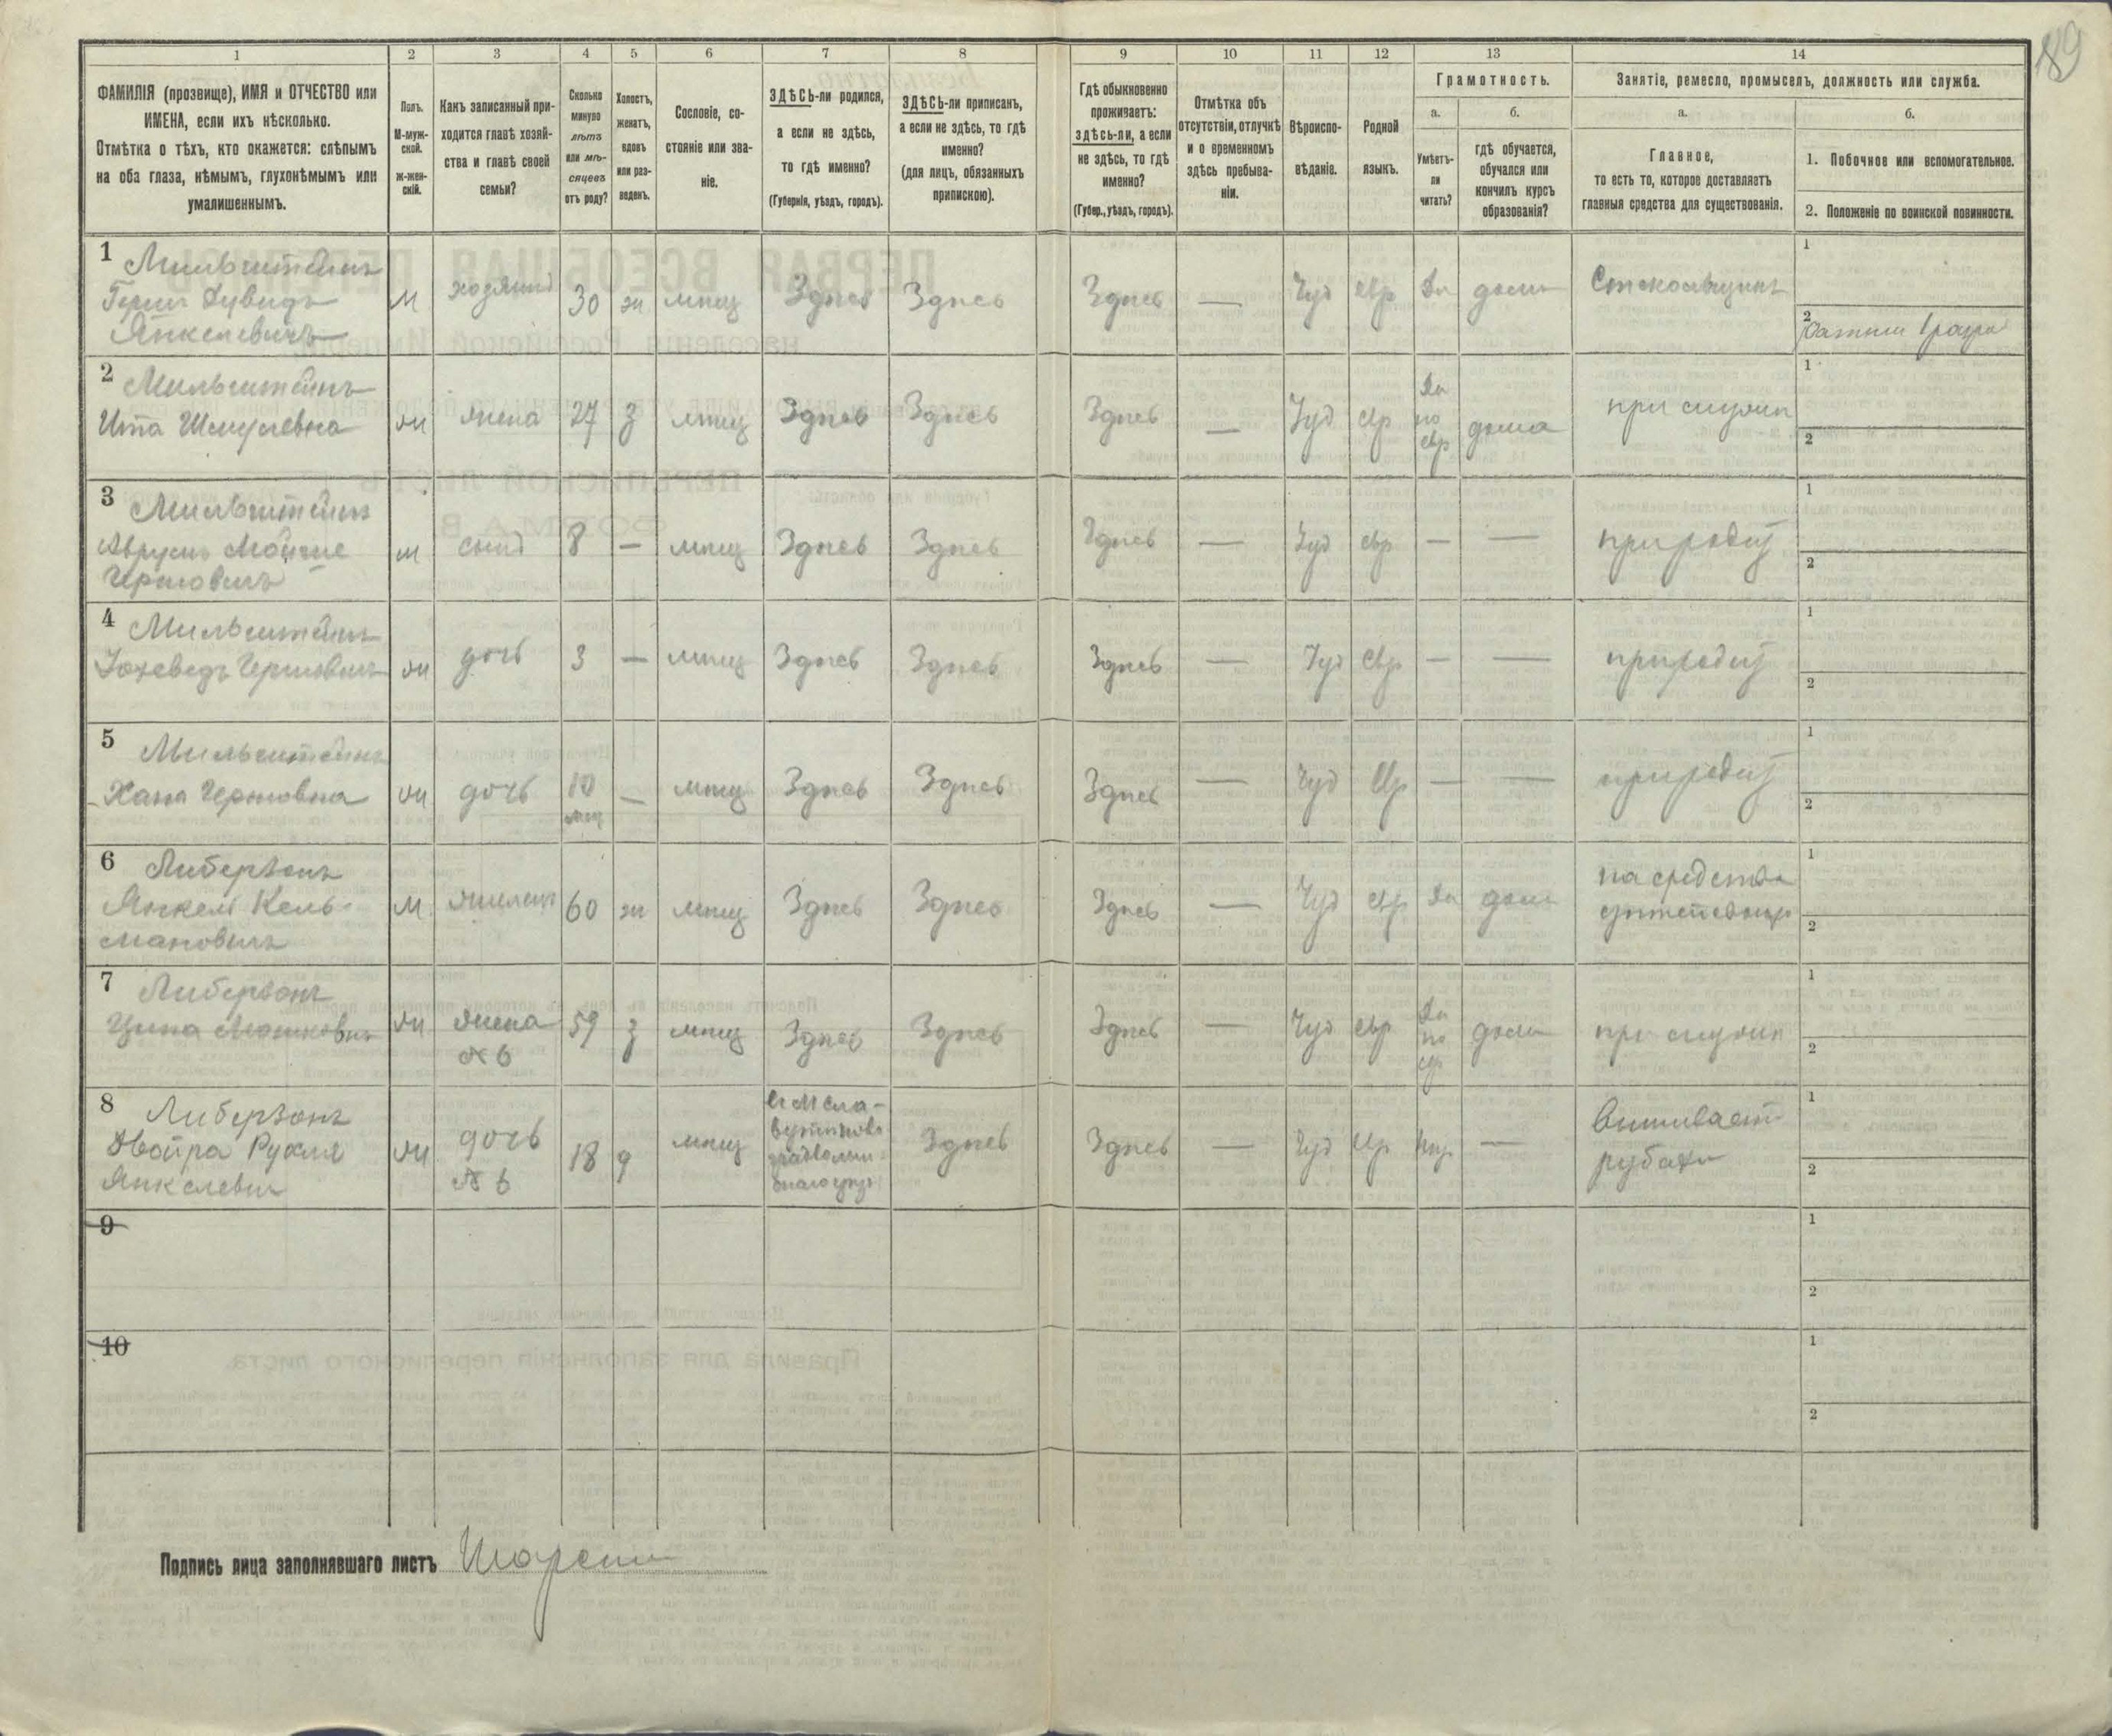 89
1 2 3 4 5 6 7 8 9 10 11 12 13 14
ФАМИЛІЯ (прозвище), ИМЯ и ОТЧЕСТВО или
ИМЕНА, если ихъ нѣсколько.
Отмѣтка о тѣхъ, кто окажется: слѣпымъ
на оба глаза, нѣмымъ, глухонѣмымъ или
умалишеннымъ.
Полъ.
М-муж-
ской.
Ж-жен-
скій.
Какъ записанный при-
ходится главѣ хозяй-
ства и главѣ своей
семьи?
Сколько
минуло
лѣтъ
или мѣ-
сяцевъ
отъ роду?
Холостъ,
женатъ,
вдовъ
или раз-
веденъ.
Сословіе, со-
стояніе или зва-
ніе.
ЗДѢСЬ-ли родился,
а если не здѣсь,
то гдѣ именно?
(Губернія, уѣздъ, городъ).
ЗДѢСЬ-ли приписанъ,
а если не здѣсь, то гдѣ
именно?
(для лицъ, обязанныхъ
припискою).
Гдѣ обыкновенно
проживаетъ:
здѣсь-ли, а если
не здѣсь, то гдѣ
именно?
(Губер., уѣздъ, городъ).
Отмѣтка объ
отсутствіи, отлучкѣ
и о временномъ
здѣсь пребыва-
ніи.
Вѣроиспо-
вѣданіе.
Родной
языкъ.
Грамотность.
а.
Умѣетъ-
ли
читать?
б.
гдѣ обучается,
обучался или
кончилъ курсъ
образованія?
Занятіе, ремесло, промыселъ, должность или служба.
а.
Главное,
то есть то, которое доставляетъ
главныя средства для существованія.
б.
1. Побочное или вспомогательное.
2. Положеніе по воинской повинности.
1 Мильштейнъ
Герш Дувидъ
Янкелевичъ
М хозяинъ 30 ж мѣщ Здѣсь Здѣсь Здѣсь — Іуд евр Да дома Стекольщикъ
1
2
2 Мильштейнъ
Ита Шмулевна
ж жена 27 з мѣщ Здѣсь Здѣсь Здѣсь — Іуд евр Да
по
евр дома при мужѣ
1
2
3 Мильштейнъ
Мойше
Гершовичъ
м сынъ 8 — мѣщ Здѣсь Здѣсь Здѣсь — Іуд евр — — при родит
1
2
4 Мильштейнъ
Юхеведъ Гершовна
ж дочь 3 — мѣщ Здѣсь Здѣсь Здѣсь — Іуд евр — — при родит
1
2
5 Мильштейнъ
Хана Гершовна
ж дочь 10
мѣс — мѣщ Здѣсь Здѣсь Здѣсь — Іуд евр — — при родит
1
2
6 Либерзонъ
Янкель Кель-
мановичъ
М жилецъ 60 ж мѣщ Здѣсь Здѣсь Здѣсь — Іуд евр Да дома на средства
1
2
7 Либерзонъ
Ципа Мошковна
ж жена
№ 6 59 з мѣщ Здѣсь Здѣсь Здѣсь — Іуд евр Да
по
евр дома при мужѣ
1
2
8 Либерзонъ
Двойра Рухля
Янкелевна
ж дочь
№ 6 18 д мѣщ Здѣсь Здѣсь — Іуд евр — Вышиваетъ
рубахи
1
2
9
1
2
10
1
2
Подпись лица заполнявшаго листъ